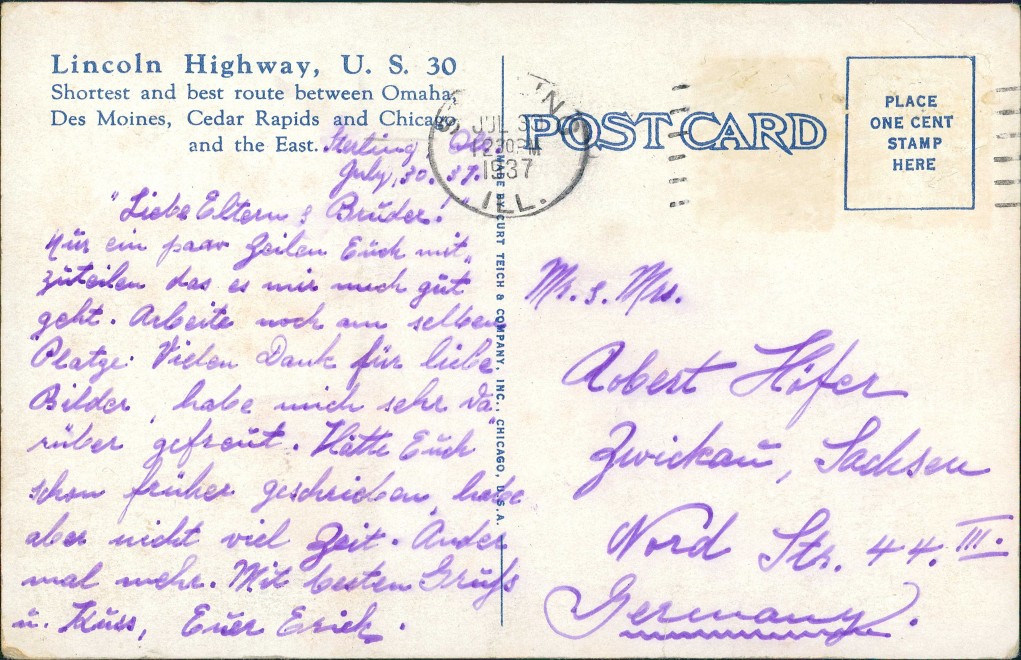 Lincoln Highway, U. S. 30
Shortest and best route between Omaha,
Des Moines, Cedar Rapids and Chicago
and the East.
Sterling Ill.
July, 30. 37.
"Liebe Eltern & Brüder!"
Nur ein paar Zeilen Euch mit„
zuteilen das es mir noch gut
geht. Arbeite noch am selben
Platze. Vielen Dank für liebe
Bilder, habe mich sehr da„
rüber gefreut. Hätte Euch
schon früher geschrieben, habe
aber nicht viel Zeit. Ander
mal mehr. Mit besten Gruß
u. Kuss, Euer Erich.
JUL 3
12 30 PM
1937
ILL.
MADE BY CURT TEICH & COMPANY, INC., CHICAGO, U.S.A.
POST CARD
PLACE
ONE CENT
STAMP
HERE
Mr. & Mrs.
Robert Höfer
Zwickau, Sachsen
Nord Str. 44. III.
Germany.